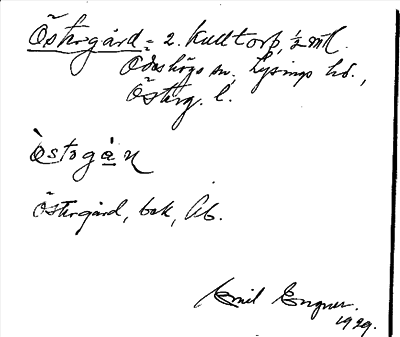 Östergård = 2. Kulltorp, ½ mtl.
Ödeshögs sn, Lysings hd.,
Österg. l.
Östergård, bok, Ab.
Emil Engner.
1929.